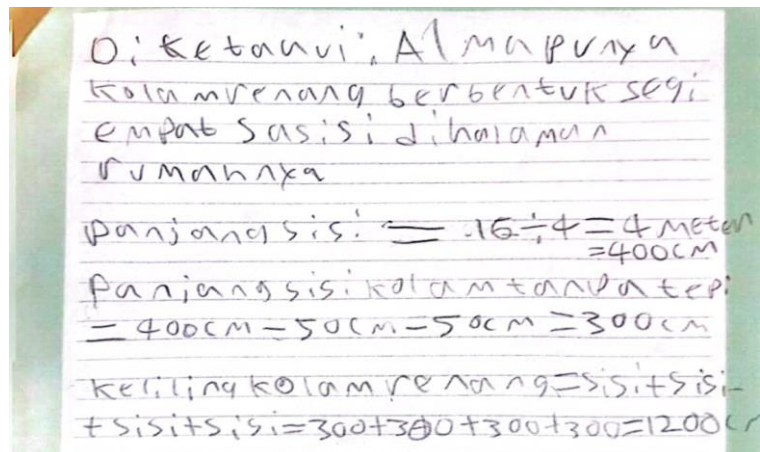 Diketaavi: Almapunya
kolamrenang berbentuk segi
empat sasisi dihalaman
rumahnya
panjang sisi = 16÷4=4 meter
=400cm
panjang sisi kolam tanpa tepi
= 400cm-50cm-50cm=300cm
keliling kolam renang=sisi+sisi-
+sisi+sisi=300+300+300+300=1200c